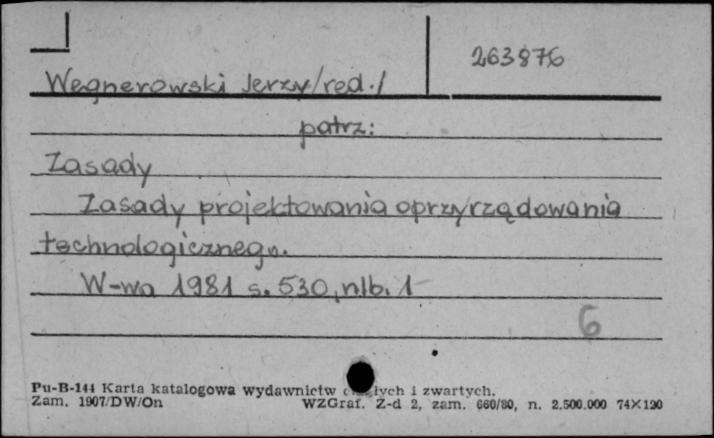 263876
Wegnerowski Jerzy /red./
patrz:
Zasady
Zasady projektowania oprzyrządowania
technologicznego.
W-wa 1981 s. 530, nlb. 1
6
Pu-B-144 Karta katalogowa wydawnictw i zwartych.
Zam. 1907/DW/On WZGraf. Z-d 2, zam. 660/80, n. 2.500.000 74×120